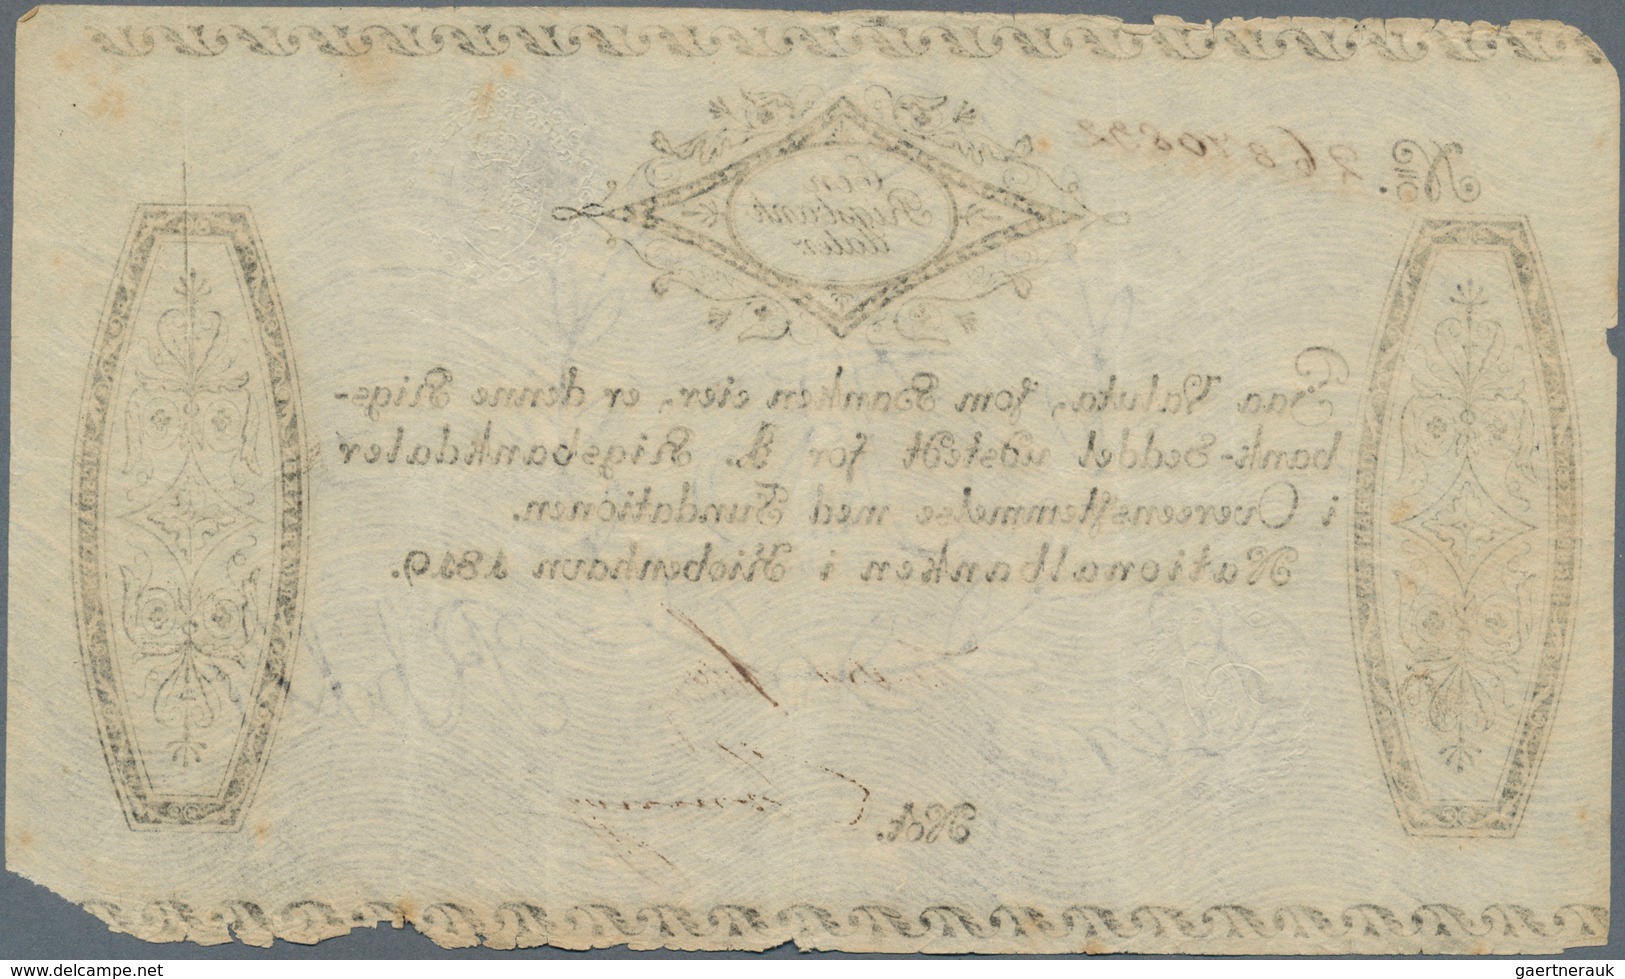 No. 26870892
Een
Rigsbank
daler
Saa Valuta, som Banken eier, er denne Rigs-
bank-Seddel udstedt for 1. Rigsbankdaler
i Overeensstemmelse med Fundationen.
Nationalbanken i Kiöbenhavn 1819.
Not.
www.delcampe.net
gaertnerauk